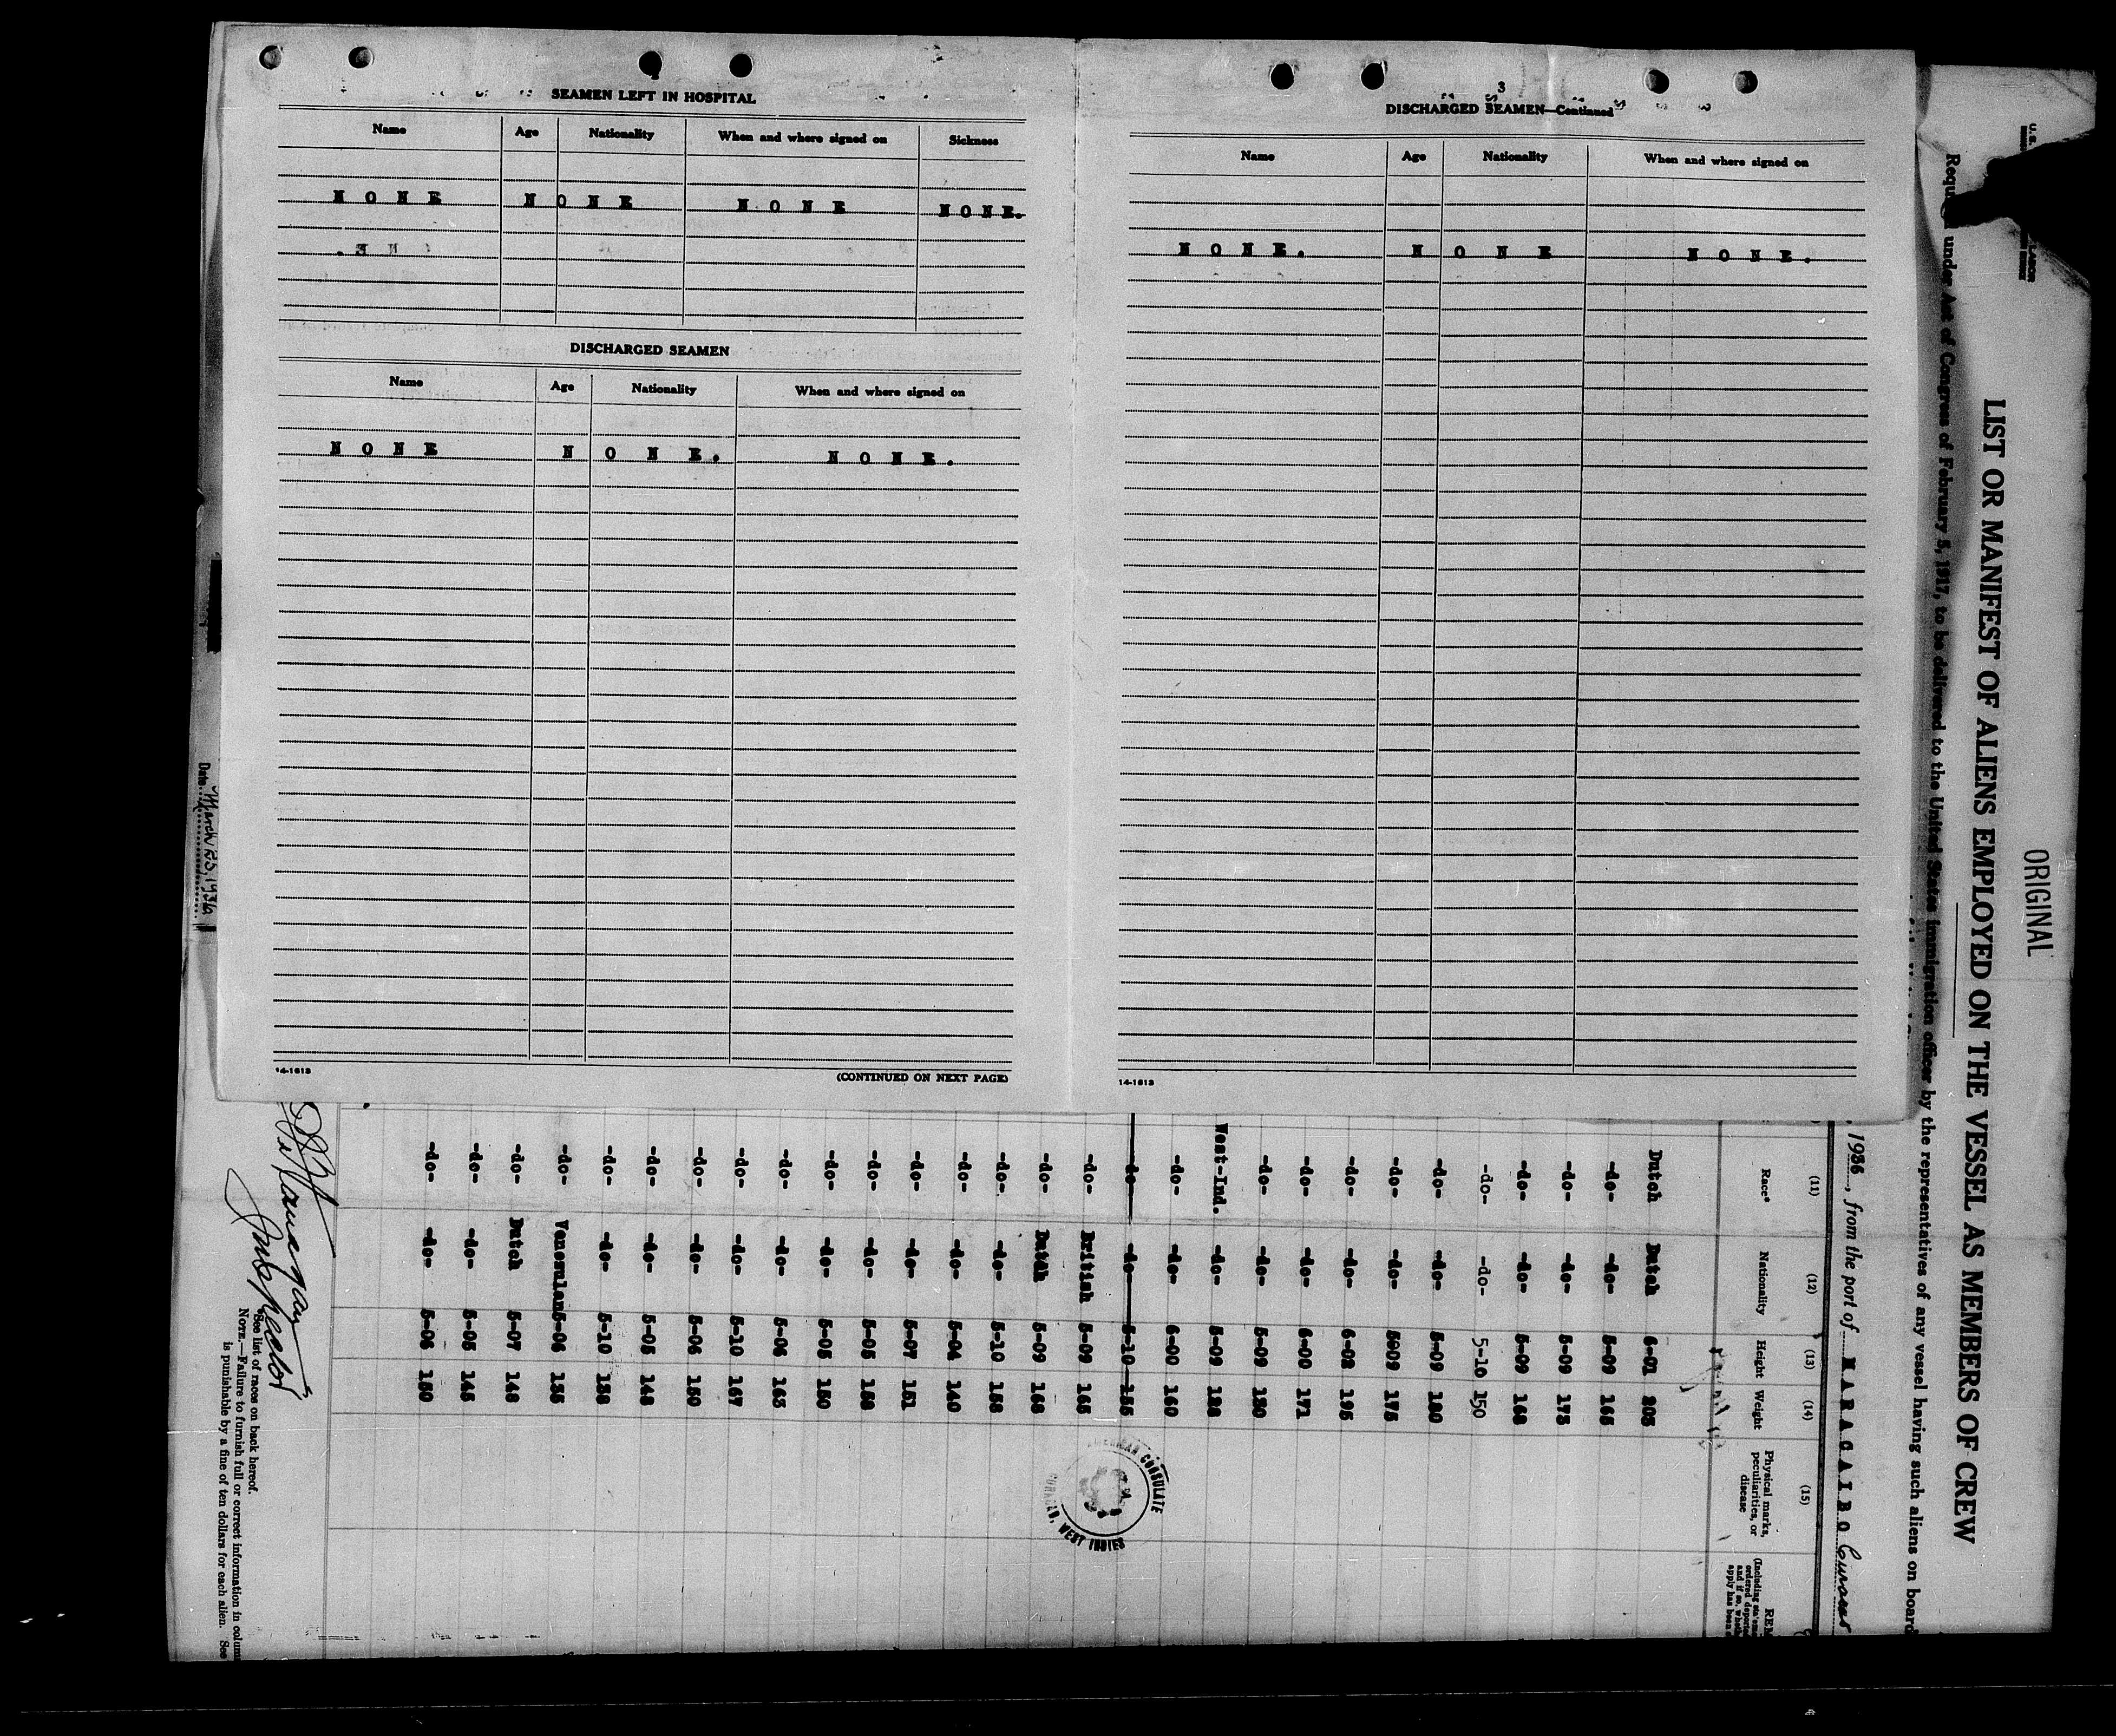 SEAMEN LEFT IN HOSPITAL
Name Age Nationality When and where signed on Sickness
N O N E N O N E N O N E N O N E.
DISCHARGED SEAMEN
Name Age Nationality When and where signed on
N O N E N O N E. N O N E.
14-1613 (CONTINUED ON NEXT PAGE)
3
DISCHARGED SEAMEN—Continued
Name Age Nationality When and where signed on
N O N E. N O N E N O N E.
14-1613
ORIGINAL
LIST OR MANIFEST OF ALIENS EMPLOYED ON THE VESSEL AS MEMBERS OF CREW
under Act of Congress of February 5, 1917, to be delivered to the United States immigration officer by the representatives of any vessel having such aliens on board
, 1936, from the port of M A R A C A I B O Curacao
(11) (12) (13) (14) (15)
Race* Nationality Height Weight Physical marks, peculiarities, or disease
Dutch Dutch 6-01 205
-do- -do- 5-09 165
-do- -do- 5-09 175
-do- -do- 5-09 168
-do- -do- 5-10 150
-do- -do- 5-09 180
-do- -do- 5-09 175
-do- -do- 6-02 195
-do- -do- 6-00 171
-do- -do- 5-09 130
West-Ind. -do- 5-09 128
-do- -do- 6-00 160
-do- -do- 5-10 155
-do- British 5-09 165
-do- Dutch 5-09 168
-do- -do- 5-10 158
-do- -do- 5-04 140
-do- -do- 5-07 151
-do- -do- 5-05 158
-do- -do- 5-05 150
-do- -do- 5-06 163
-do- -do- 5-10 167
-do- -do- 5-06 150
-do- -do- 5-05 148
-do- -do- 5-10 138
-do- Venesulan 5-06 135
-do- Dutch 5-07 148
-do- -do- 5-05 145
-do- -do- 5-06 150
CONSULATE
WEST INDIES
Date March 25, 1936
Inspector
*See list of races on back hereof.
NOTE.—Failure to furnish full or correct information in
is punishable by a fine of ten dollars for each alien. See